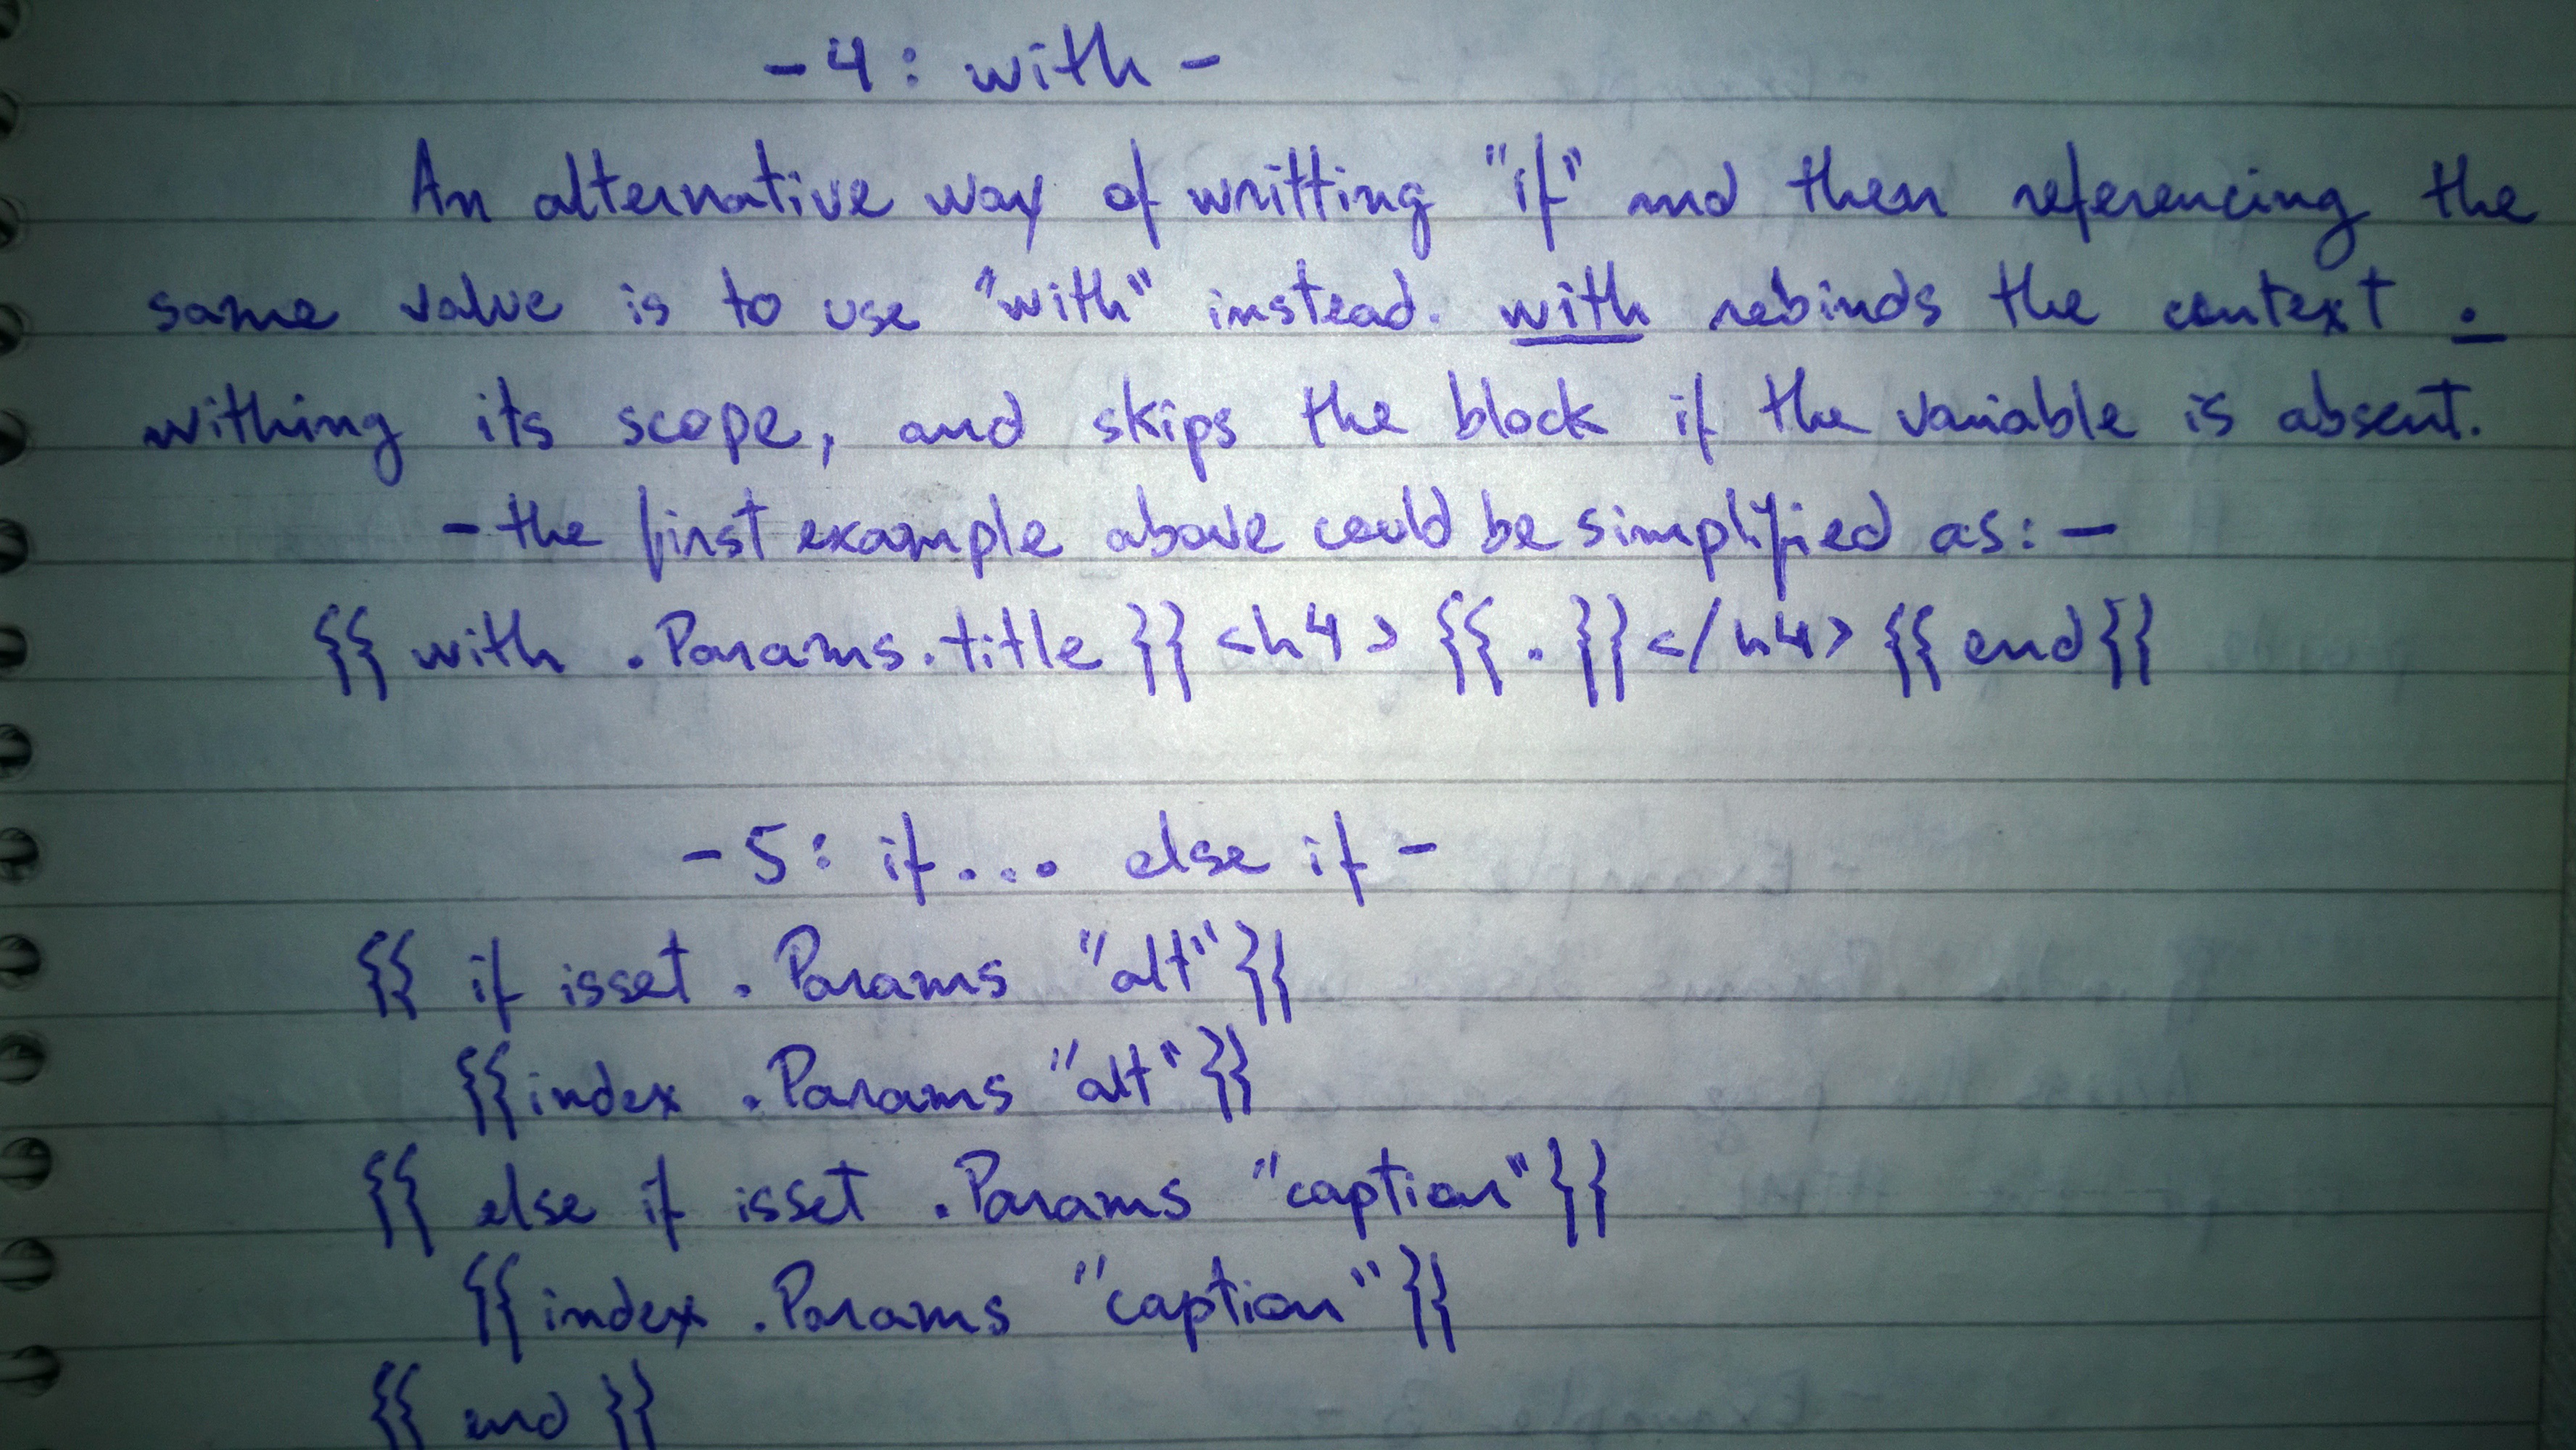 - 4: with -
An alternative way of writting "if" and then referencing the
same value is to use "with" instead. with rebinds the context .
withing its scope, and skips the block if the variable is absent.
- the first example above could be simplified as: -
{{ with .Params.title }} <h4> {{ . }} </h4> {{ end }}
- 5: if .... else if -
{{ if isset .Params "alt" }}
{{ index .Params "alt" }}
{{ else if isset .Params "caption" }}
{{ index .Params "caption" }}
{{ end }}